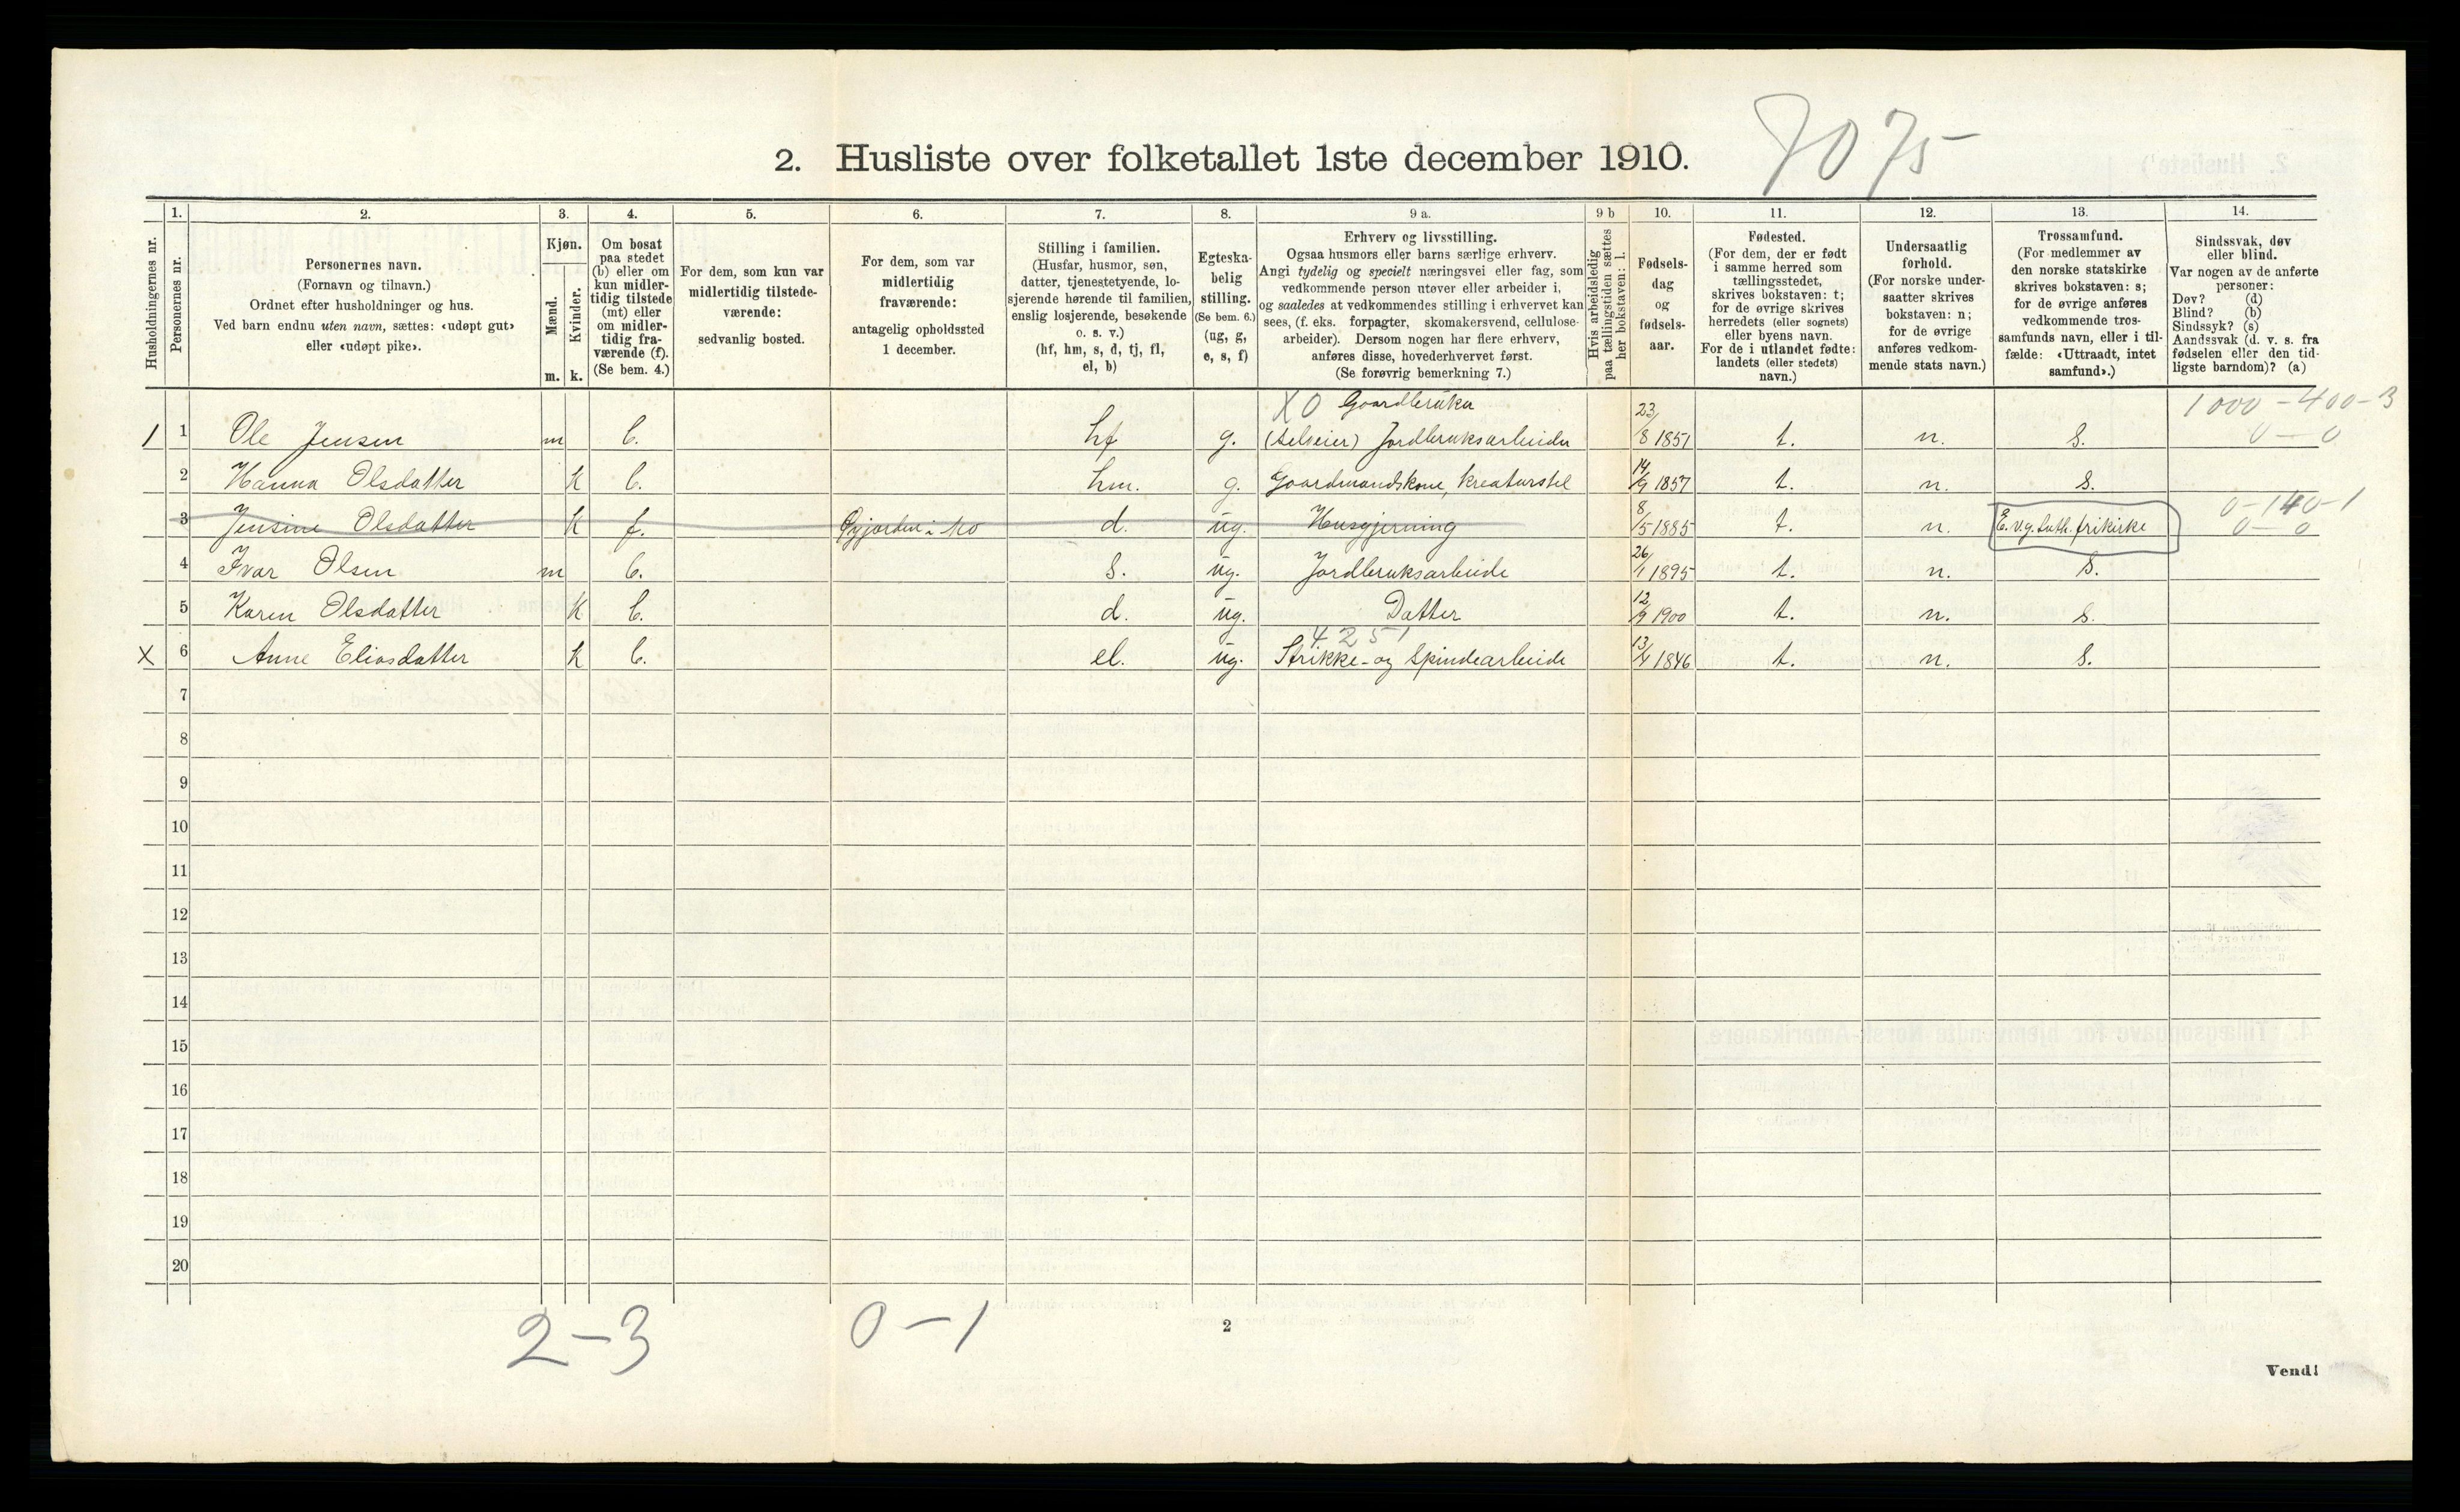 7075
2. Husliste over folketallet 1ste december 1910.
1. 2. 3. 4. 5. 6. 7. 8. 9 a. 9 b 10. 11. 12. 13. 14.
Husholdningernes nr.
Personernes nr.
Personernes navn.
(Fornavn og tilnavn.)
Ordnet efter husholdninger og hus.
Ved barn endnu uten navn, sættes: «udøpt gut»
eller «udøpt pike».
Kjøn.
Mænd.
Kvinder.
m. k.
Om bosat
paa stedet
(b) eller om
kun midler-
tidig tilstede
(mt) eller
om midler-
tidig fra-
værende (f).
(Se bem. 4.)
For dem, som kun var
midlertidig tilstede-
værende:
sedvanlig bosted.
For dem, som var
midlertidig
fraværende:
antagelig opholdssted
1 december.
Stilling i familien.
(Husfar, husmor, søn,
datter, tjenestetyende, lo-
sjerende hørende til familien,
enslig losjerende, besøkende
o. s. v.)
(hf, hm, s, d, tj, fl,
el, b)
Egteska-
belig
stilling.
(Se bem. 6.)
(ug, g,
e, s, f)
Erhverv og livsstilling.
Ogsaa husmors eller barns særlige erhverv.
Angi tydelig og specielt næringsvei eller fag, som
vedkommende person utøver eller arbeider i,
og saaledes at vedkommendes stilling i erhvervet kan
sees, (f. eks. forpagter, skomakersvend, cellulose-
arbeider). Dersom nogen har flere erhverv,
anføres disse, hovederhvervet først.
(Se forøvrig bemerkning 7.)
Hvis arbeidsledig
paa tællingstiden sættes
her bokstaven: l.
Fødsels-
dag
og
fødsels-
aar.
Fødested.
(For dem, der er født
i samme herred som
tællingsstedet,
skrives bokstaven: t;
for de øvrige skrives
herredets (eller sognets)
eller byens navn.
For de i utlandet fødte:
landets (eller stedets)
navn.)
Undersaatlig
forhold.
(For norske under-
saatter skrives
bokstaven: n;
for de øvrige
anføres vedkom-
mende stats navn.)
Trossamfund.
(For medlemmer av
den norske statskirke
skrives bokstaven: s;
for de øvrige anføres
vedkommende tros-
samfunds navn, eller i til-
fælde: «Uttraadt, intet
samfund».)
Sindssvak, døv
eller blind.
Var nogen av de anførte
personer:
Døv? (d)
Blind? (b)
Sindssyk? (s)
Aandssvak (d. v. s. fra
fødselen eller den tid-
ligste barndom)? (a)
X0 Gaardbruker 1000-400-3
1 1 Ole Jensen m b. hf g. (selveier) Jordbruksarbeider 23/8 1851 t. n. s. 0-0
2 Hanna Olsdatter k b. hm. g. Gaardmandskone, kreaturstel 14/9 1857 t. n. s.
0-140-1
3 Jensine Olsdatter k f. Øyjorden i Mo d. ug. Husgjerning 8/5 1885 t. n. E.v.g. luth. frikirke 0-0
4 Ivar Olsen m b. s. ug. Jordbruksarbeide 26/1 1895 t. n. s.
5 Karen Olsdatter k b. d. ug. Datter 12/9 1900 t. n. s.
4251
X 6 Anne Eliasdatter k b. el. ug. Strikke- og Spindearbeide 13/4 1846 t. n. s.
7
8
9
10
11
12
13
14
15
16
17
18
19
20
2-3 0-1
2
Vend!